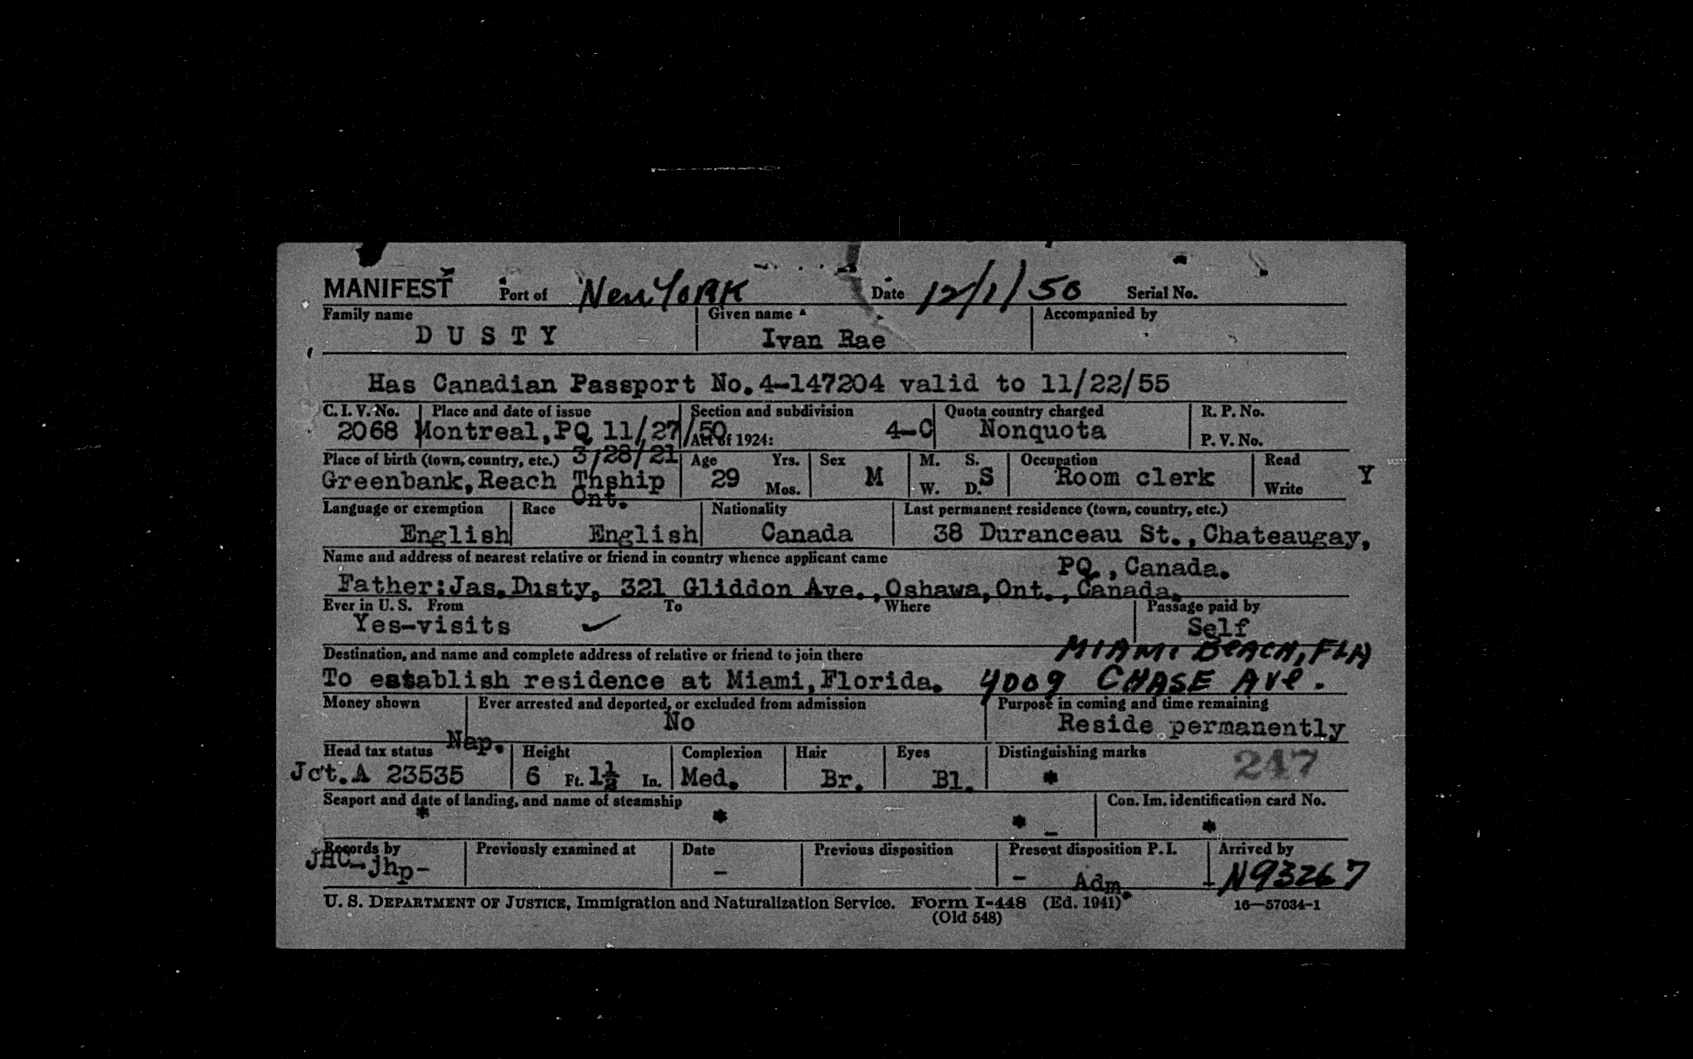 MANIFEST Port of New YORK Date 12/1/50 Serial No.
Family name Given name Accompanied by
DUSTY Ivan Rae
Has Canadian Passport No.4-147204 valid to 11/22/55
C. I. V. No. Place and date of issue Section and subdivision Quota country charged R. P. No.
2068 Montreal,PQ 11/27/50 Act of 1924: 4-C Nonquota P. V. No.
Place of birth (town, country, etc.) 3/28/21 Age Yrs. Sex M. S. Occupation Read
Greenbank,Reach Tnship 29 Mos. M W. D. S Room clerk Write Y
Ont.
Language or exemption Race Nationality Last permanent residence (town, country, etc.)
English English Canada 38 Duranceau St.,Chateaugay,
Name and address of nearest relative or friend in country whence applicant came
PQ.,Canada.
Father:Jas.Dusty, 321 Gliddon Ave.,Oshawa,Ont.,Canada.
Ever in U. S. From To Where Passage paid by
Yes-visits ✓ Self
Destination, and name and complete address of relative or friend to join there MIAMI BeACH, FLA
To establish residence at Miami,Florida. 4009 CHASE AVe.
Money shown Ever arrested and deported, or excluded from admission Purpose in coming and time remaining
No Reside permanently
Head tax status Nap. Height Complexion Hair Eyes Distinguishing marks 247
Jct.A 23535 6 Ft. 1½ In. Med. Br. Bl. *
Seaport and date of landing, and name of steamship Con. Im. identification card No.
* * * - *
Records by Previously examined at Date Previous disposition Present disposition P. I. Arrived by
JHC-jhp- - - Adm. - N93267
U. S. DEPARTMENT OF JUSTICE, Immigration and Naturalization Service. Form I-448 (Ed. 1941) 16—57034-1
(Old 548)